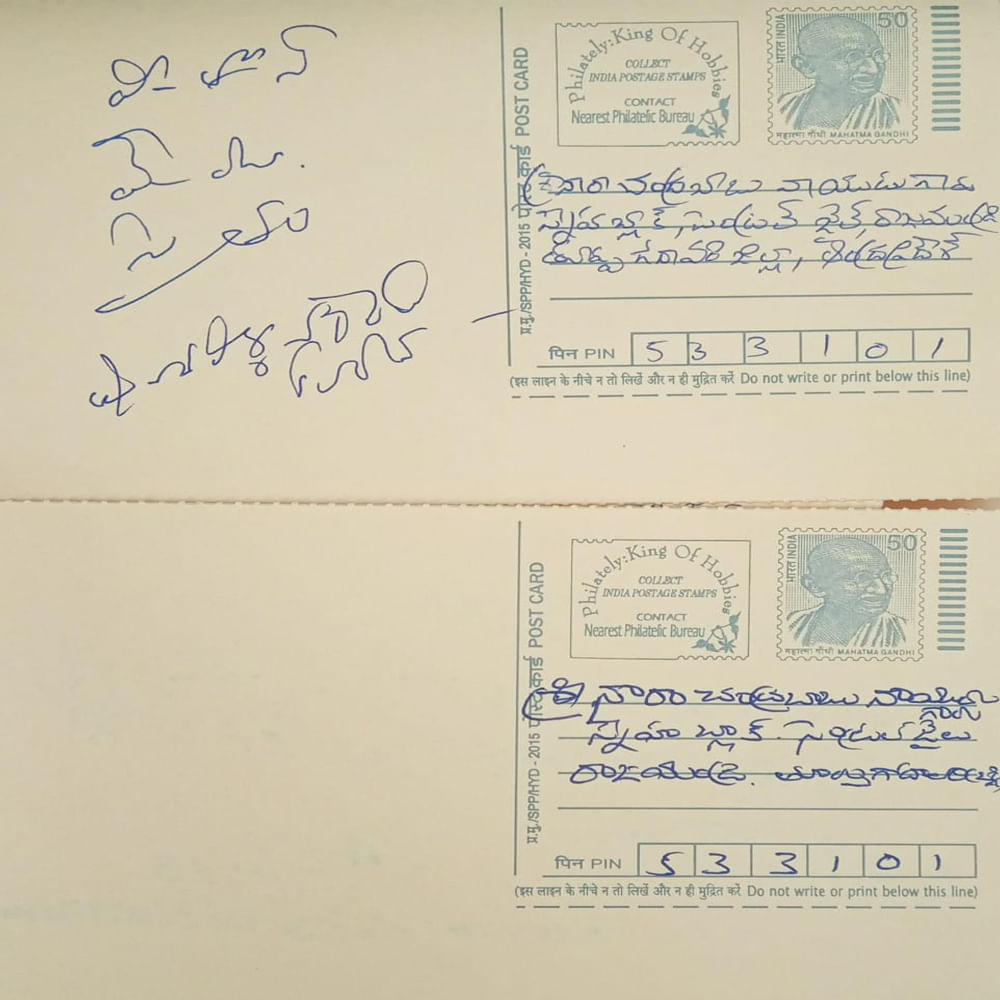 50
भारत INDIA
महात्मा गाँधी MAHATMA GANDHI
Philately: King Of Hobbies
COLLECT
INDIA POSTAGE STAMPS
CONTACT
Nearest Philatelic Bureau
प्र.मु./SPP/HYD - 2015 पोस्ट कार्ड POST CARD
శ్రీ నారా చంద్రబాబు నాయుడు గారు
స్నేహ బ్లాక్, సెంట్రల్ జైల్, రాజమండ్రి
తూర్పు గోదావరి జిల్లా, ఆంధ్రప్రదేశ్
पिन PIN 5 3 3 1 0 1
(इस लाइन के नीचे न तो लिखें और न ही मुद्रित करें Do not write or print below this line)
50
भारत INDIA
महात्मा गाँधी MAHATMA GANDHI
Philately: King Of Hobbies
COLLECT
INDIA POSTAGE STAMPS
CONTACT
Nearest Philatelic Bureau
प्र.मु./SPP/HYD - 2015 पोस्ट कार्ड POST CARD
శ్రీ నారా చంద్రబాబు నాయుడు
గారు
స్నేహా బ్లాక్. సెంట్రల్ జైలు
రాజమండ్రి. తూర్పుగోదావరి
पिन PIN 5 3 3 1 0 1
(इस लाइन के नीचे न तो लिखें और न ही मुद्रित करें Do not write or print below this line)